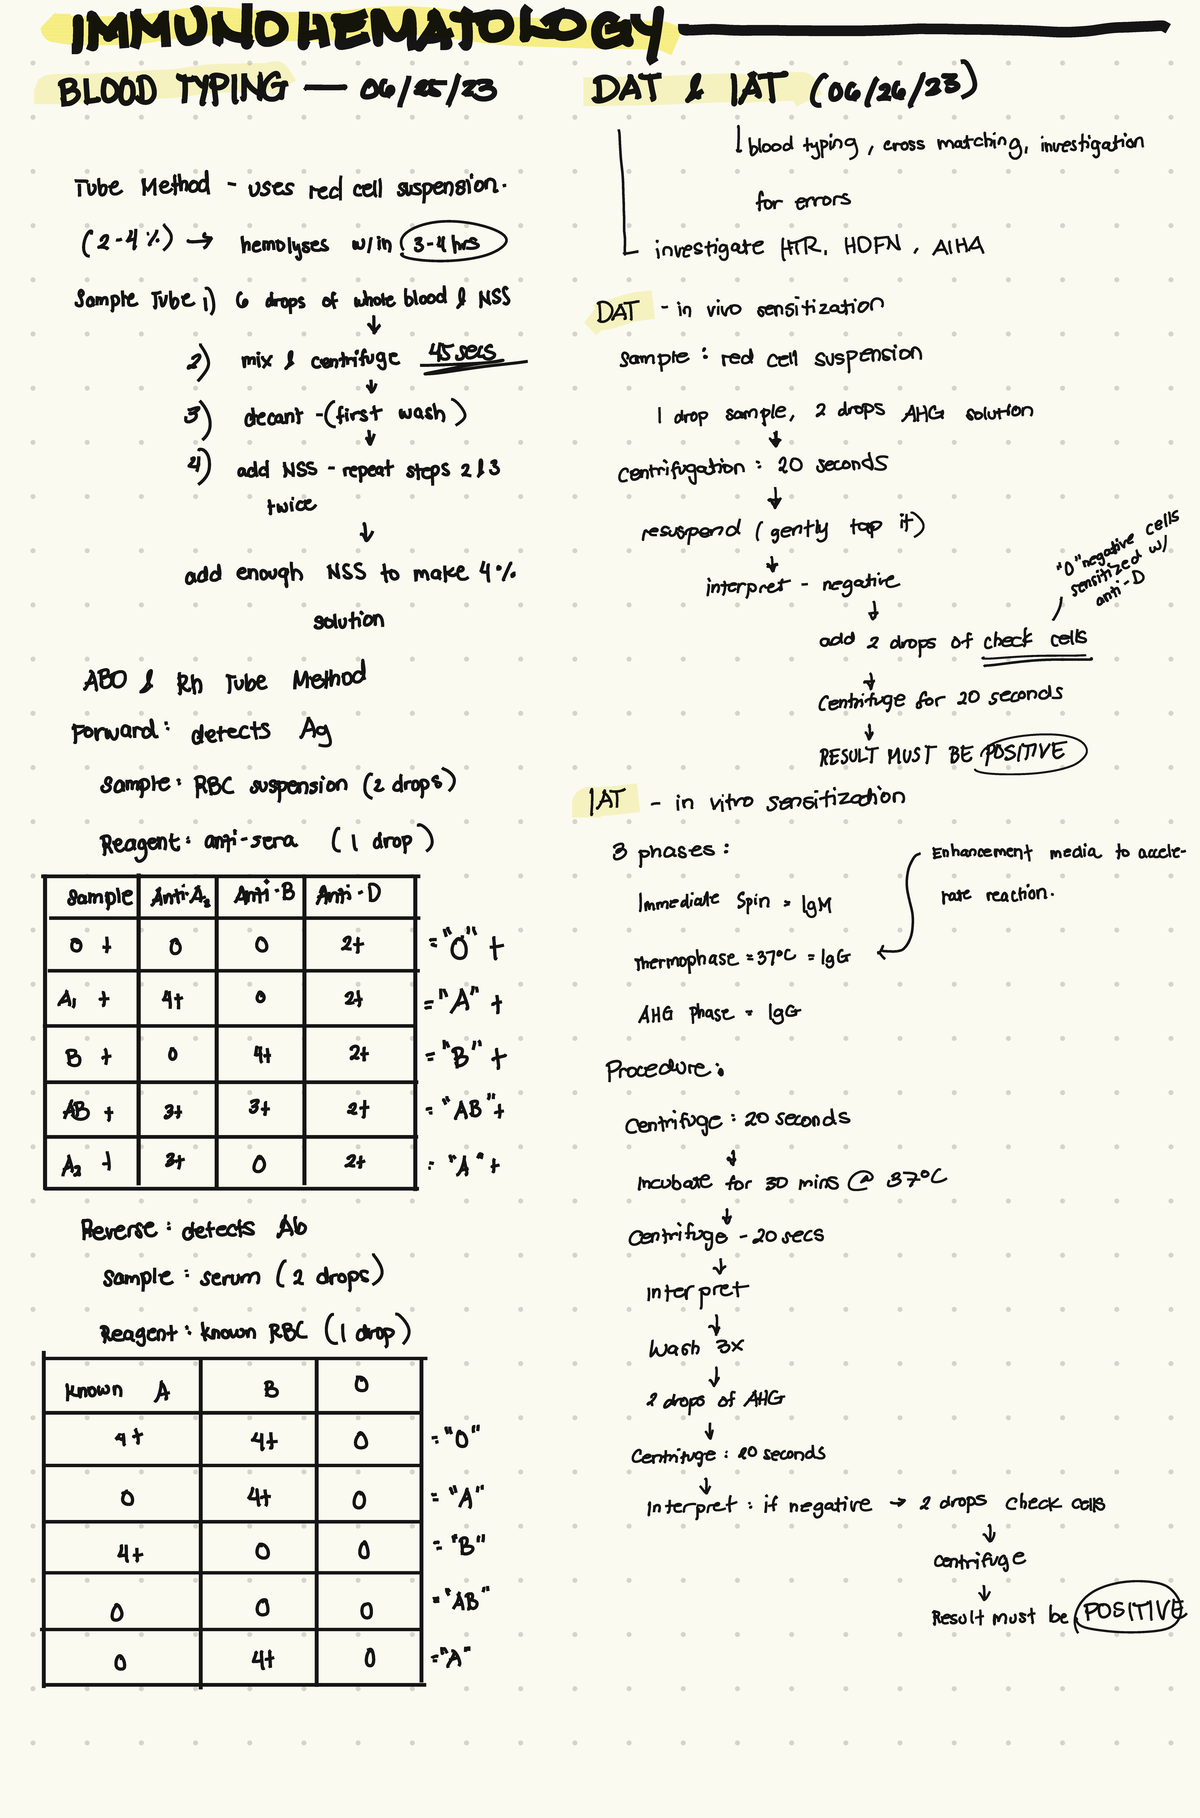 IMMUNOHEMATOLOGY
BLOOD TYPING — 06/25/23
Tube Method - uses red cell suspension.
(2-4%) → hemolyses w/in 3-4 hrs
Sample Tube 1) 6 drops of whole blood & NSS
↓
2) mix & centrifuge 45 secs
↓
3) decant - (first wash)
↓
4) add NSS - repeat steps 2 & 3
twice
↓
add enough NSS to make 4%
solution
ABO & Rh Tube Method
Forward: detects Ag
Sample: RBC suspension (2 drops)
Reagent: anti-sera (1 drop)
Sample Anti-A Anti-B Anti-D
O + 0 0 2+ = "O" +
A₁ + 4+ 0 2+ = "A" +
B + 0 4+ 2+ = "B" +
AB + 3+ 3+ 2+ = "AB" +
A₂ + 3+ 0 2+ = "A" +
Reverse: detects Ab
Sample: serum (2 drops)
Reagent: known RBC (1 drop)
Known A B O
4+ 4+ 0 = "O"
0 4+ 0 = "A"
4+ 0 0 = "B"
0 0 0 = "AB"
0 4+ 0 = "A"
DAT & IAT (06/26/23)
blood typing, cross matching, investigation
for errors
investigate HTR, HDFN, AIHA
DAT - in vivo sensitization
Sample: red cell suspension
1 drop sample, 2 drops AHG solution
↓
Centrifugation: 20 seconds
↓
resuspend (gently tap it)
↓
interpret - negative
↓
add 2 drops of check cells
"O" negative cells
sensitized w/
anti-D
↓
Centrifuge for 20 seconds
↓
RESULT MUST BE POSITIVE
IAT - in vitro sensitization
3 phases:
Immediate Spin = IgM
Thermophase = 37°C = IgG
Enhancement media to accele-
rate reaction.
AHG Phase = IgG
Procedure:
Centrifuge: 20 seconds
↓
Incubate for 30 mins @ 37°C
↓
Centrifuge - 20 secs
↓
Interpret
↓
Wash 3x
↓
2 drops of AHG
↓
Centrifuge: 20 seconds
↓
Interpret: if negative → 2 drops check cells
↓
Centrifuge
↓
Result must be POSITIVE